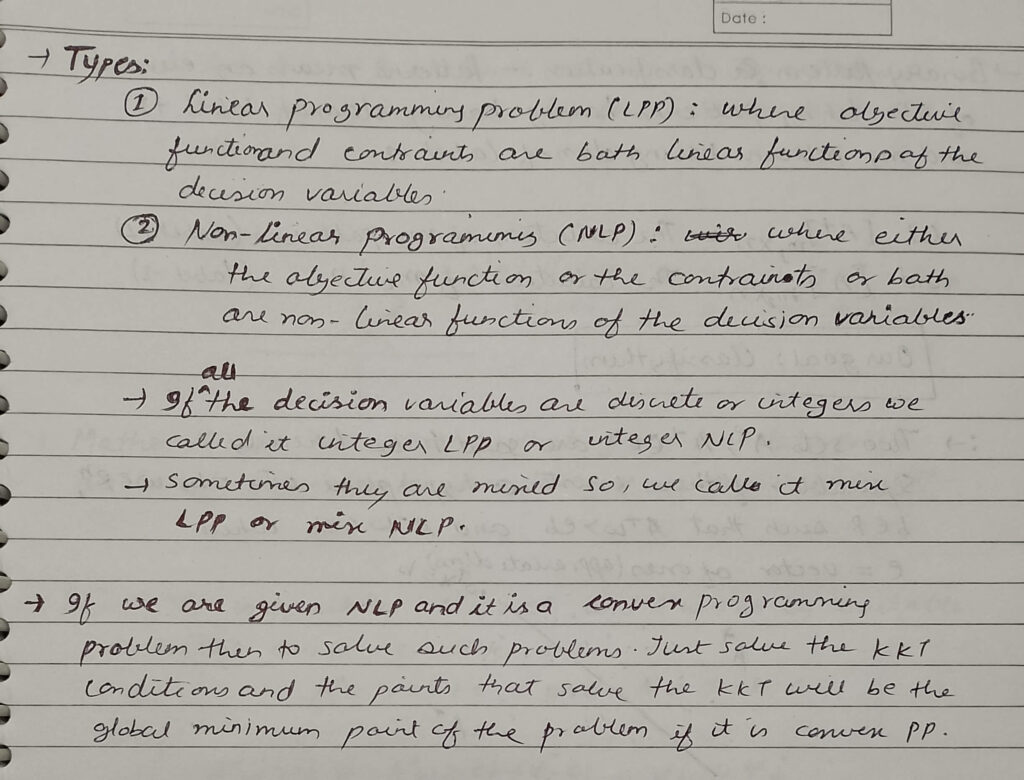 Date :
→ Types:
① Linear programming problem (LPP) : where objective
function and contraints are both linear functions of the
decision variables.
② Non-linear programming (NLP) : where either
the objective function or the contraints or both
are non-linear functions of the decision variables.
all
→ If ^ the decision variables are discrete or integers we
called it integer LPP or integer NLP.
→ Sometimes they are mixed so, we call it mix
LPP or mix NLP.
→ If we are given NLP and it is a convex programming
problem then to solve such problems. Just solve the KKT
conditions and the points that solve the KKT will be the
global minimum point of the problem if it is convex PP.